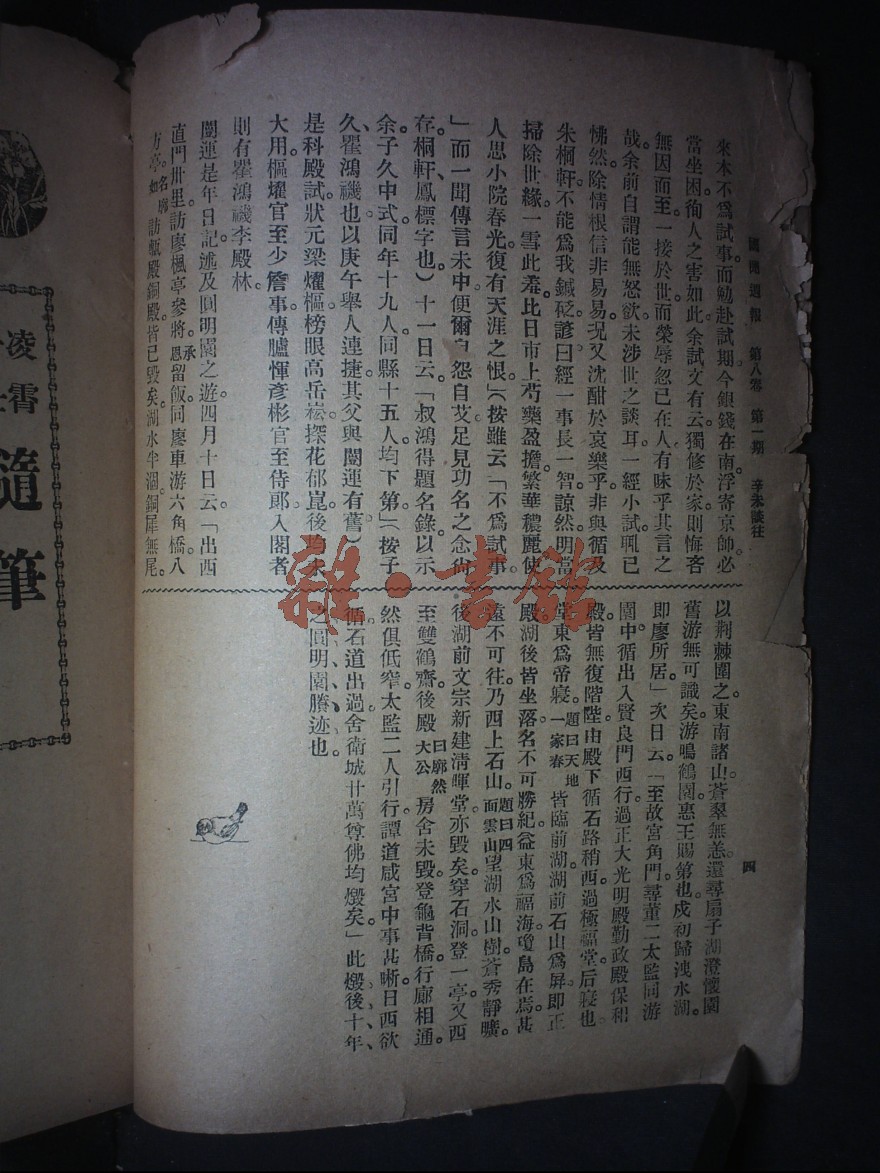 國聞週報　第八卷　第一期　辛未談往
四
來本不爲試事而勉赴試期。今銀錢在南浮寄京師。必
當坐困。徇人之害如此。余試文有云。獨修於家。則悔吝
無因而至。一接於世。而榮辱忽已在人。有味乎其言之
哉。余前自謂能無怒欲。未涉世之談耳。一經小試。輒已
怫然。除情根信非易易。況又沈酣於哀樂乎。非與循及
朱桐軒不能爲我鍼砭。諺曰經一事長一智。諒然。明當
掃除世緣。一雪此羞。比日市上芍藥盈擔。繁華穠麗。使
人思小院春光。復有天涯之恨。」（按雖云「不爲試事
」而一聞傳言未中。便爾自怨自艾。足見功名之念尚
存。桐軒鳳標字也）十一日云。「叔鴻得題名錄以示
余。子久中式。同年十九人。同縣十五人。均下第。」（按子
久、瞿鴻禨也。以庚午舉人連捷。其父與闓運有舊。）
是科殿試。狀元梁燿樞。榜眼高岳崧。探花郁崑。後均未
大用。樞燿官至少詹事。傳臚惲彥彬官至侍郎。入閣者
則有瞿鴻禨李殿林。
闓運是年日記。述及圓明園之遊。四月十日云。「出西
直門卅里。訪廖楓亭參將。承恩留飯。同廖車游六角橋。八
方亭。名廓如訪瓶殿銅殿。皆已毀矣。湖水半涸。銅犀無尾。
以荆棘圍之。東南諸山。蒼翠無恙。還尋扇子湖澄懷園
舊游無可識矣。游鳴鶴園。惠王賜第也。戌初歸洩水湖。
即廖所居」次日云。「至故宮角門。尋董二太監同游
園中。循出入賢良門西行。過正大光明殿勤政殿保和
殿。皆無復階陛。由殿下循石路稍西。過極福堂。后寢也。
堂東爲帝寢。題曰天地一家春皆臨前湖。湖前石山爲屏。即正
殿。湖後皆坐落。名不可勝紀。益東爲福海。瓊島在焉。甚
遠不可往。乃西上石山。題曰四面雲山望湖水山樹。蒼秀靜曠。
後湖前文宗新建清暉堂。亦毀矣。穿石洞。登一亭。又西
至雙鶴齋。後殿曰廓然大公房舍未毀。登龜背橋。行廊相通。
然俱低窄。太監二人引行。譚道咸宮中事甚晰。日西欲
循石道出。過舍衛城。廿萬尊佛均燬矣。」此燬後十年、
之圓明園賸迹也。
凌霄
隨筆